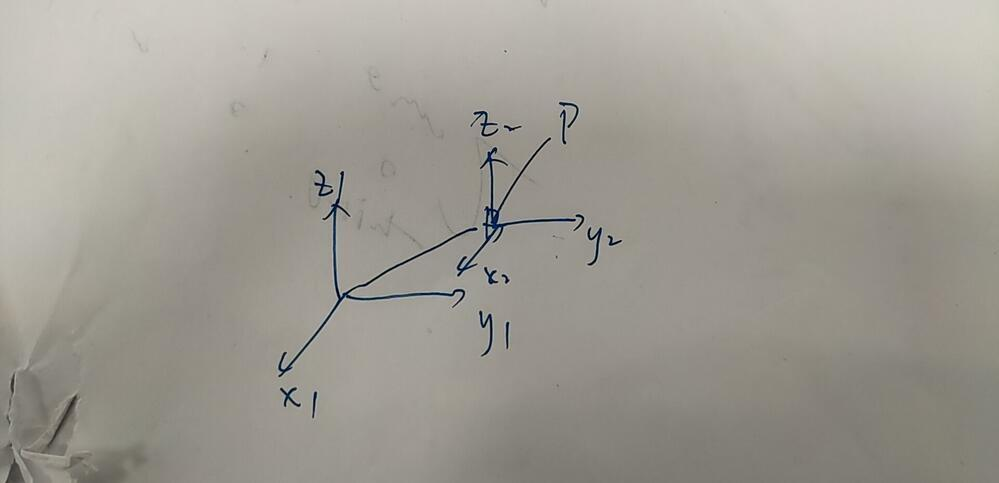 z2
P
z1
y2
x2
y1
x1